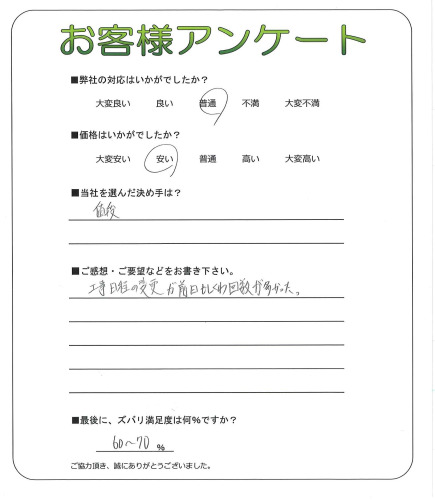 お客様アンケート
■弊社の対応はいかがでしたか?
大変良い 良い 普通 不満 大変不満
■価格はいかがでしたか?
大変安い 安い 普通 高い 大変高い
■当社を選んだ決め手は?
価格
■ご感想・ご要望などをお書き下さい。
工事日程の変更が前日もしくわ回数が多かった。
■最後に、ズバリ満足度は何%ですか?
60~70 %
ご協力頂き、誠にありがとうございました。